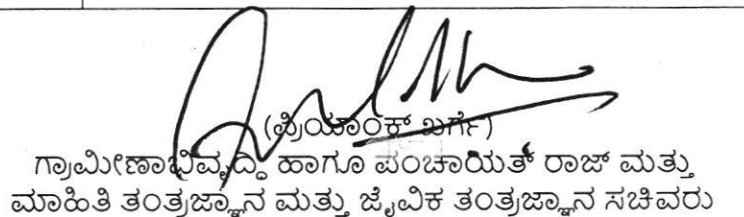 (ಪ್ರಿಯಾಂಕ್ ಖರ್ಗೆ)
ಗ್ರಾಮೀಣಾಭಿವೃದ್ಧಿ ಹಾಗೂ ಪಂಚಾಯತ್ ರಾಜ್ ಮತ್ತು
ಮಾಹಿತಿ ತಂತ್ರಜ್ಞಾನ ಮತ್ತು ಜೈವಿಕ ತಂತ್ರಜ್ಞಾನ ಸಚಿವರು